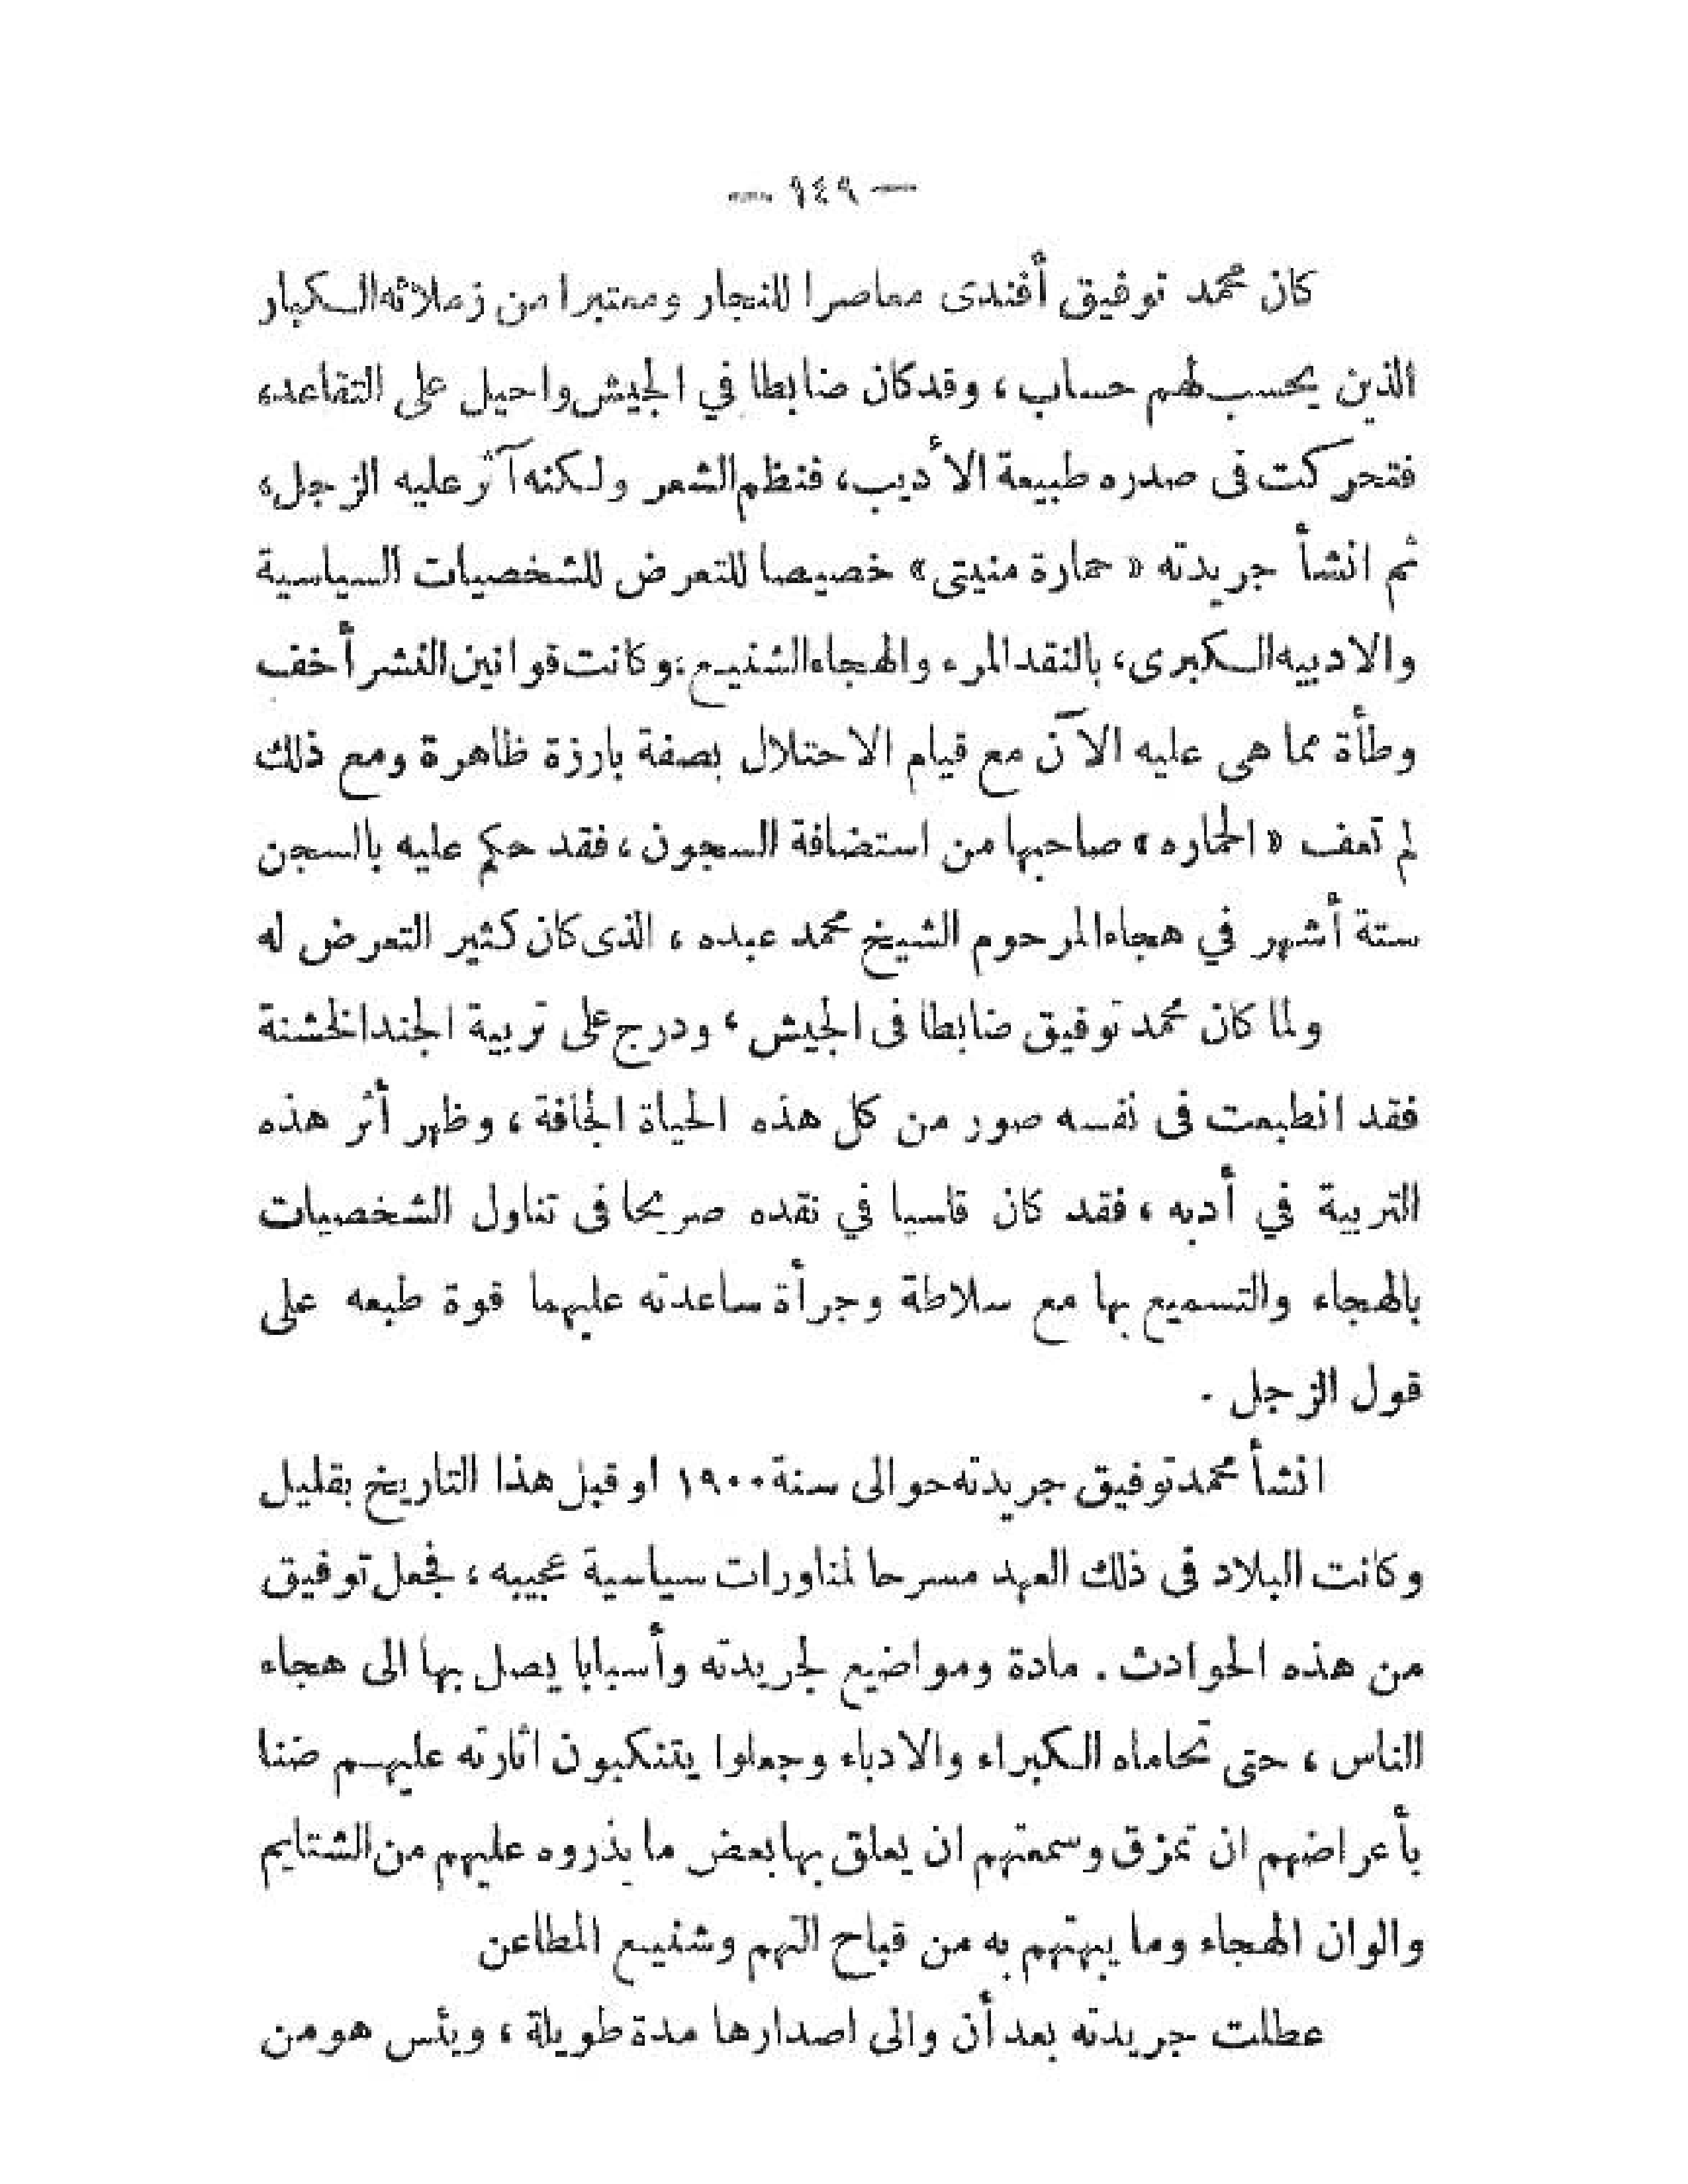 — ١٤٩ —
كان محمد توفيق أفندى معاصرا للنجار ومعتبرا من زملائه الكبار
الذين يحسب لهم حساب ، وقد كان ضابطا في الجيش واحيل على التقاعد،
فتحركت فى صدره طبيعة الأديب، فنظم الشعر ولكنه آثر عليه الزجل،
ثم انشأ جريدته « حمارة منيتى» خصيصا للتعرض للشخصيات السياسية
والادبيه الكبرى، بالنقد المرء والهجاء الشنيع ؛ وكانت قوانين النشر أخف
وطأة مما هى عليه الآن مع قيام الاحتلال بصفة بارزة ظاهرة ومع ذلك
لم تعف « الحماره » صاحبها من استضافة السجون ، فقد حكم عليه بالسجن
ستة أشهر في هجاء المرحوم الشيخ محمد عبده ، الذى كان كثير التعرض له
ولما كان محمد توفيق ضابطا فى الجيش ، ودرج على تربية الجند الخشنة
فقد انطبعت فى نفسه صور من كل هذه الحياة الجافة ، وظهر أثر هذه
التربية في أدبه ، فقد كان قاسيا في نقده صريحا فى تناول الشخصيات
بالهجاء والتسميع بها مع سلاطة وجرأة ساعدته عليهما قوة طبعه على
قول الزجل .
انشأ محمد توفيق جريدته حوالى سنة ١٩٠٠ او قبل هذا التاريخ بقليل
وكانت البلاد فى ذلك العهد مسرحا لمناورات سياسية عجيبه ، فجعل توفيق
من هذه الحوادث . مادة ومواضيع لجريدته وأسبابا يصل بها الى هجاء
الناس ، حتى تحاماه الكبراء والادباء وجعلوا يتنكبون اثارته عليهم ضنا
بأعراضهم ان تمزق وسمعتهم ان يعلق بها بعض ما يذروه عليهم من الشتايم
والوان الهجاء وما يبهتهم به من قباح التهم وشنيع المطاعن
عطلت جريدته بعد أن والى اصدارها مدة طويلة ، ويئس هو من